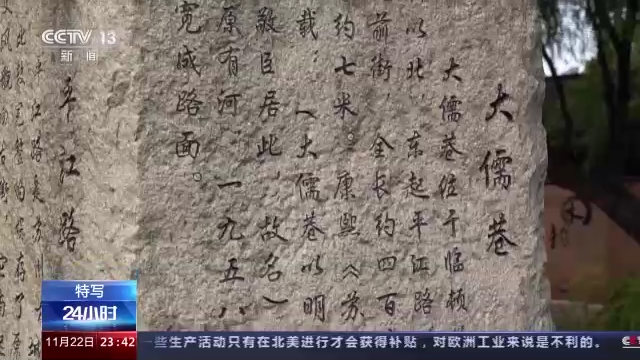 CCTV 13
新闻
大儒巷
大儒巷位于临顿
以北，东起平江路
前街，全长约四百
约七米。康熙《苏
载：（大儒巷以明
敬臣居此，故名）
原有河，一九五八
宽成路面。
平江路
特写
24小时
11月22日 23:42
一些生产活动只有在北美进行才会获得补贴，对欧洲工业来说是不利的。